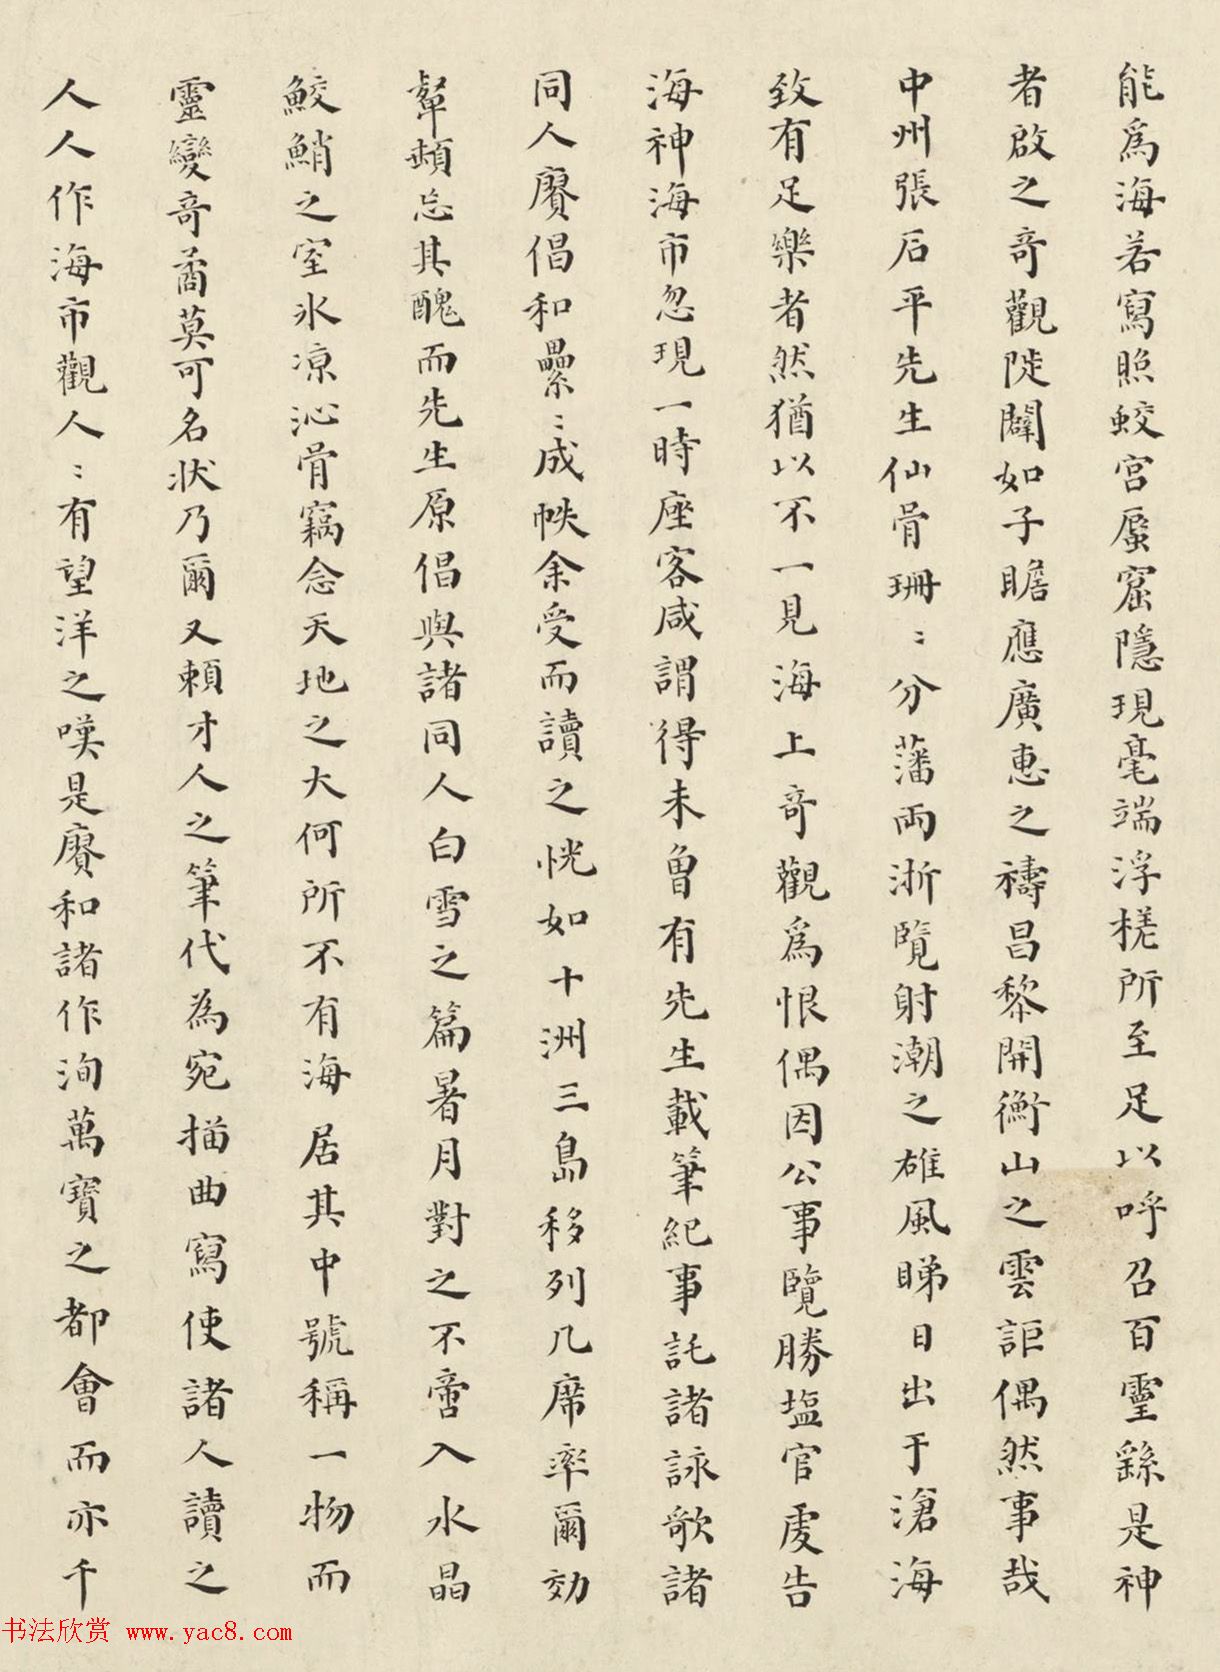 能爲海若寫照蛟宮蜃窟隱現毫端浮槎所至足以呼召百靈繇是神
者啟之奇觀陡闢如子瞻應廣惠之禱昌黎開衡山之雲詎偶然事哉
中州張石平先生仙骨珊〻分藩兩浙覽射潮之雄風睇日出于滄海
致有足樂者然猶以不一見海上奇觀爲恨偶因公事覽勝塩官虔告
海神海市忽現一時座客咸謂得未曾有先生載筆紀事託諸詠歌諸
同人賡倡和纍〻成帙余受而讀之恍如十洲三島移列几席率爾効
顰頓忘其醜而先生原倡與諸同人白雪之篇暑月對之不啻入水晶
鮫鮹之室氷凉沁骨竊念天地之大何所不有海居其中號稱一物而
靈變奇矞莫可名狀乃爾又頼才人之筆代為宛描曲寫使諸人讀之
人人作海市觀人〻有望洋之嘆是賡和諸作洵萬寶之都會而亦千
书法欣赏 www.yac8.com